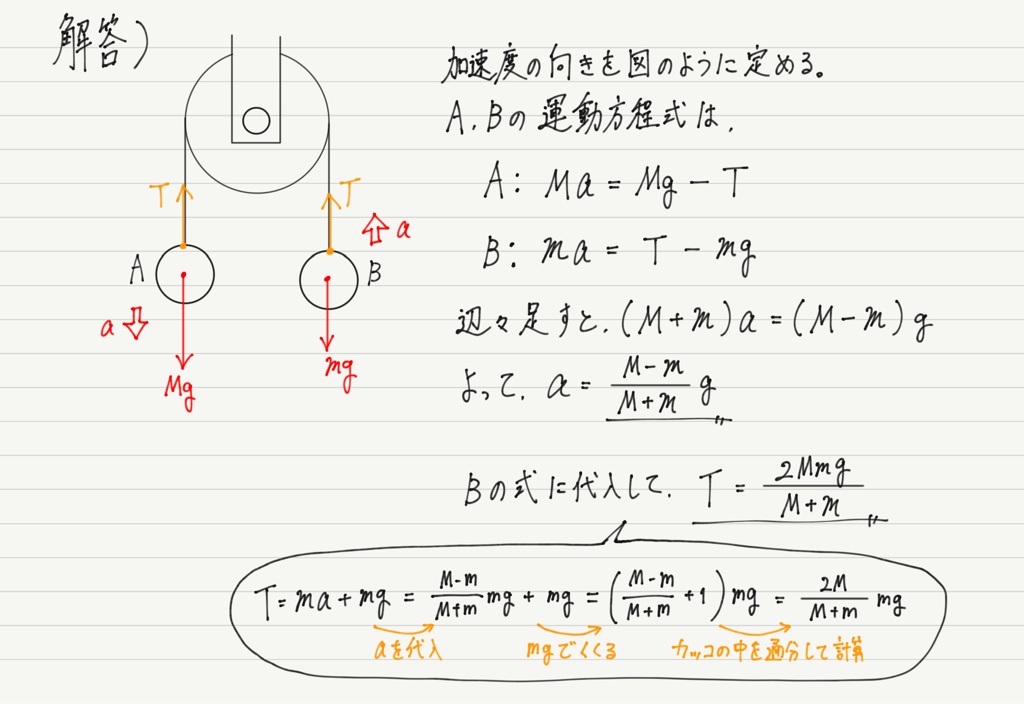 解答)
T
T
a
A
B
a
Mg
mg
加速度の向きを図のように定める。
A, Bの運動方程式は,
A: Ma = Mg - T
B: ma = T - mg
辺々足すと, (M+m)a = (M-m)g
よって, a = \frac{M-m}{M+m} g
Bの式に代入して, T = \frac{2Mmg}{M+m}
T = ma + mg = \frac{M-m}{M+m} mg + mg = \left( \frac{M-m}{M+m} + 1 \right) mg = \frac{2M}{M+m} mg
aを代入 mgでくくる カッコの中を通分して計算